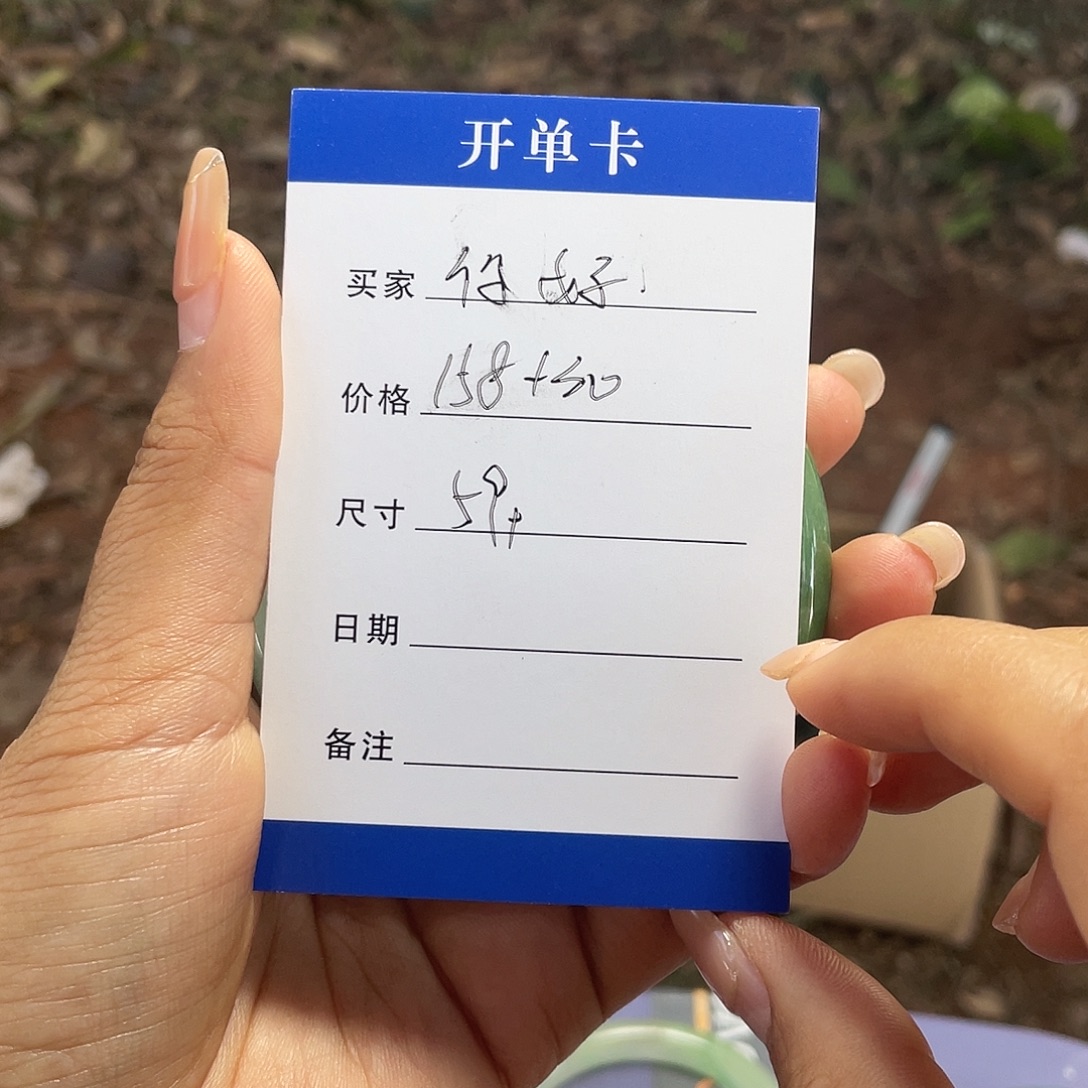 开单卡
买家 你好
价格 158+30
尺寸 59+
日期
备注